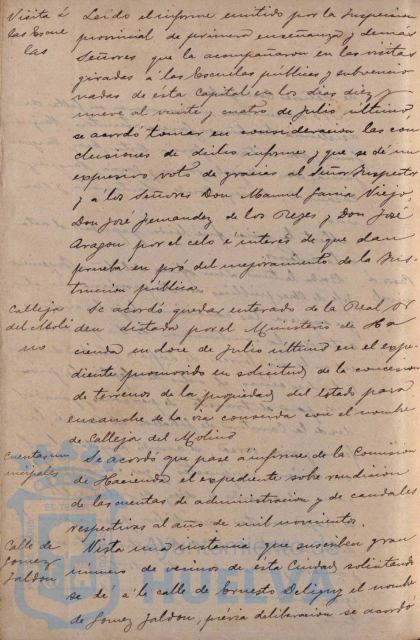 Visita á
las Escue
las
Leido el informe emitido por la Inspeccion
provincial de primera enseñanza y demás
Señores que la acompañaron en las visitas
giradas á las Escuelas públicas y subvencio
nadas de esta Capital en los dias diez y
nueve al veinte y cuatro de Julio último
se acordó tomar en consideracion las con
clusiones de dicho informe y que se dé un
expresivo voto de gracias al Señor Inspector
y á los Señores Don Manuel Garcia Viejo
Don José Fernandez de los Reyes y Don José
Aragon por el celo é interes de que dan
prueba en pró del mejoramiento de la Ins
truccion pública.
Calleja
del Moli
no
Se acordó quedar enterado de la Real Or
den dictada por el Ministerio de Ha
cienda en doce de Julio último en el expe
diente promovido en solicitud de la concesion
de terrenos de la propiedad del Estado para
ensanche de la via conocida con el nombre
de Calleja del Molino
Cuentas mu
nicipales
Se acordó que pase á informe de la Comision
de Hacienda el expediente sobre rendicion
de las cuentas de administracion y de caudales
respectivas al año de mil novecientos.
Calle de
Gomez
Jaldon
Vista una instancia que suscriben gran
número de vecinos de esta Ciudad solicitando
se dé á la calle de Ernesto Deligny el nombre
de Gomez Jaldon, prévia deliberacion se acordó
HUELVA